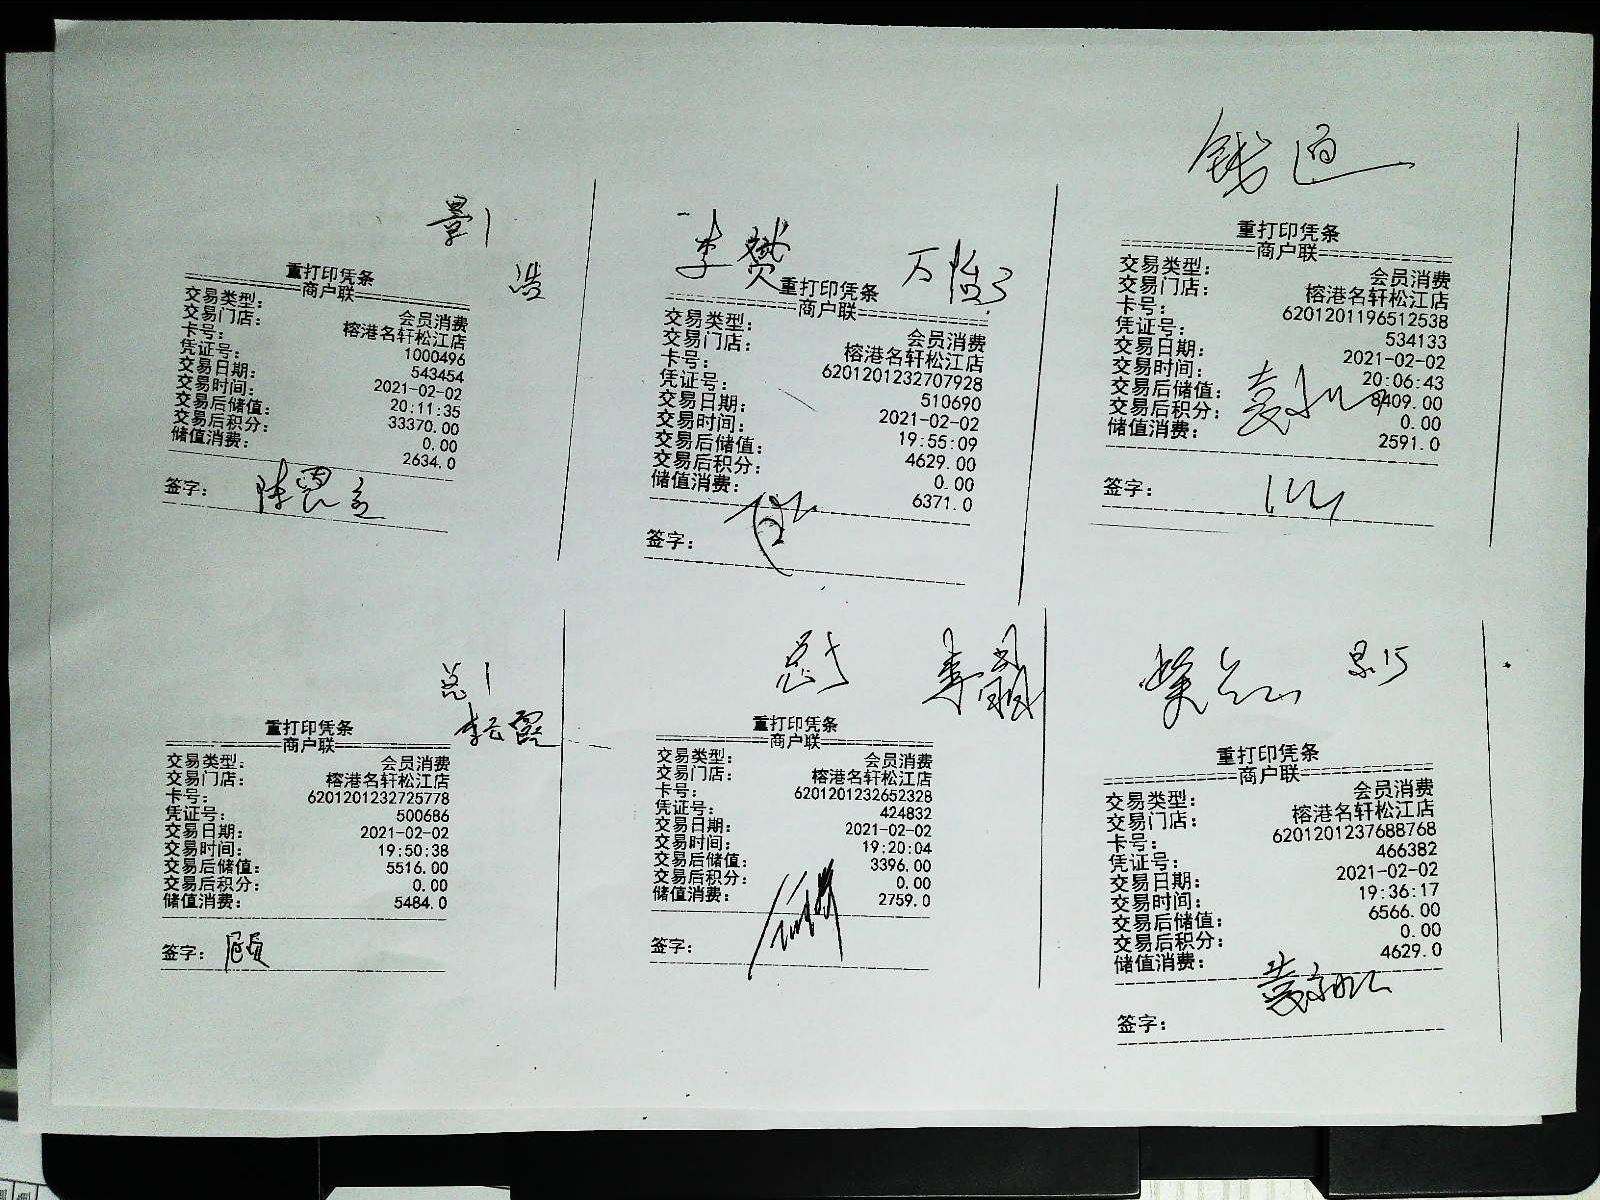 景1
浩
重打印凭条
商户联
交易类型: 会员消费
交易门店: 榕港名轩松江店
卡号: 1000496
凭证号: 543454
交易日期: 2021-02-02
交易时间: 20:11:35
交易后储值: 33370.00
交易后积分: 0.00
储值消费: 2634.0
签字:
李赟
重打印凭条
商户联
交易类型: 会员消费
交易门店: 榕港名轩松江店
卡号: 6201201232707928
凭证号: 510690
交易日期: 2021-02-02
交易时间: 19:55:09
交易后储值: 4629.00
交易后积分: 0.00
储值消费: 6371.0
签字:
重打印凭条
商户联
交易类型: 会员消费
交易门店: 榕港名轩松江店
卡号: 6201201196512538
凭证号: 534133
交易日期: 2021-02-02
交易时间: 20:06:43
交易后储值: 8409.00
交易后积分: 0.00
储值消费: 2591.0
签字:
重打印凭条
商户联
交易类型: 会员消费
交易门店: 榕港名轩松江店
卡号: 6201201232725778
凭证号: 500686
交易日期: 2021-02-02
交易时间: 19:50:38
交易后储值: 5516.00
交易后积分: 0.00
储值消费: 5484.0
签字:
重打印凭条
商户联
交易类型: 会员消费
交易门店: 榕港名轩松江店
卡号: 6201201232652328
凭证号: 424832
交易日期: 2021-02-02
交易时间: 19:20:04
交易后储值: 3396.00
交易后积分: 0.00
储值消费: 2759.0
签字:
重打印凭条
商户联
交易类型: 会员消费
交易门店: 榕港名轩松江店
卡号: 6201201237688768
凭证号: 466382
交易日期: 2021-02-02
交易时间: 19:36:17
交易后储值: 6566.00
交易后积分: 0.00
储值消费: 4629.0
签字: